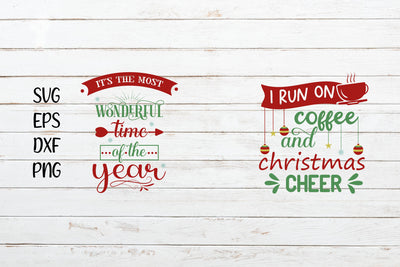 SVG
EPS
DXF
PNG
IT'S THE MOST
WONDERFUL
time
of the
year
I RUN ON
coffee
and
christmas
CHEER